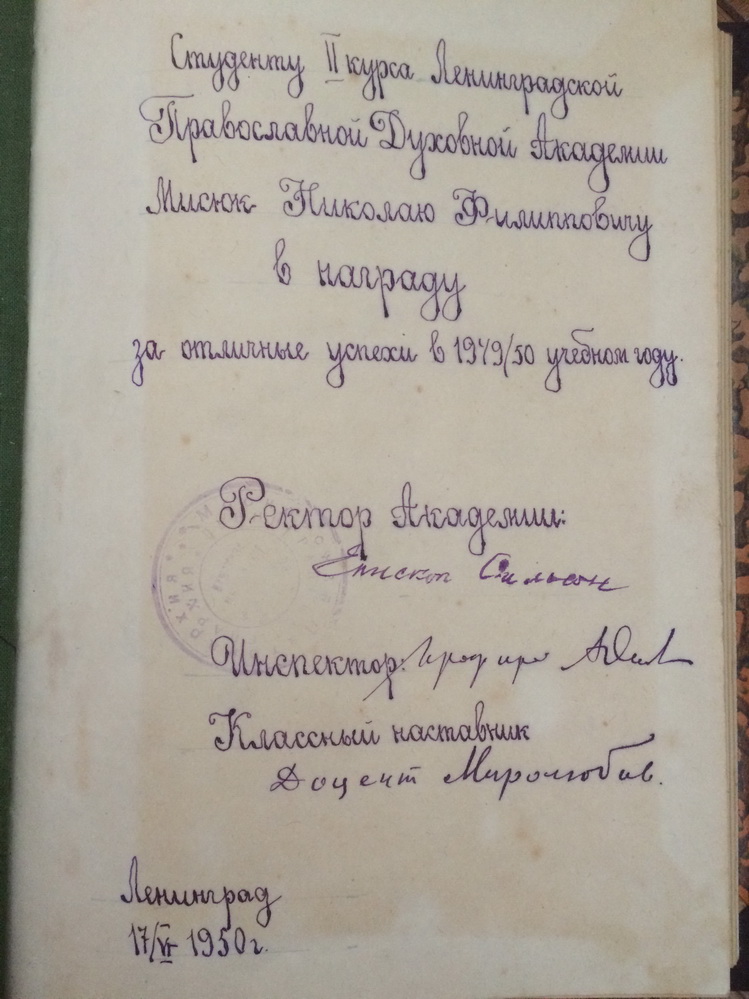 Студенту II курса Ленинградской
Православной Духовной Академии
Мисюк Николаю Филипповичу
в награду
за отличные успехи в 1949/50 учебном году.
Ректор Академии:
Епископ Симеон
Инспектор:
Классный наставник
Доцент Миролюбов.
Ленинград
17/VI 1950 г.